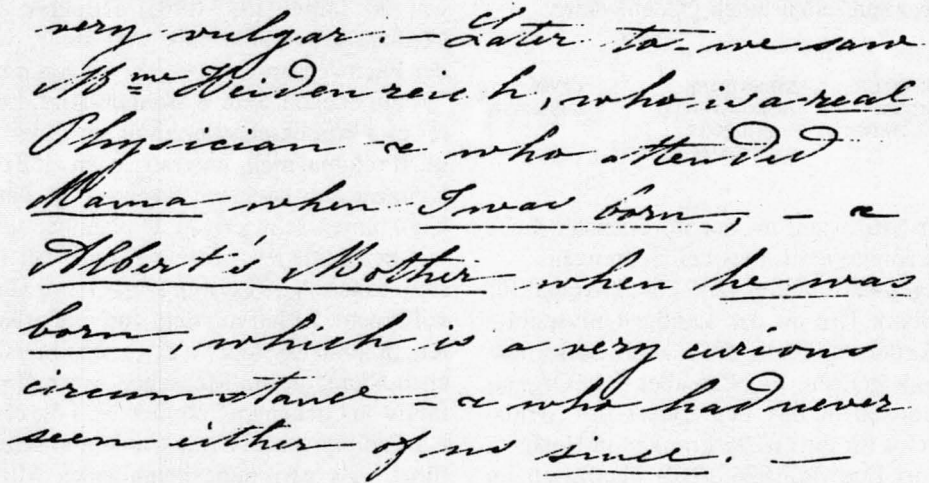 very vulgar. – Later to- we saw
Mme Heidenreich, who is a real
Physician & who attended
Mama when I was born, – &
Albert's Mother when he was
born, which is a very curious
circumstance – & who had never
seen either of us since. —